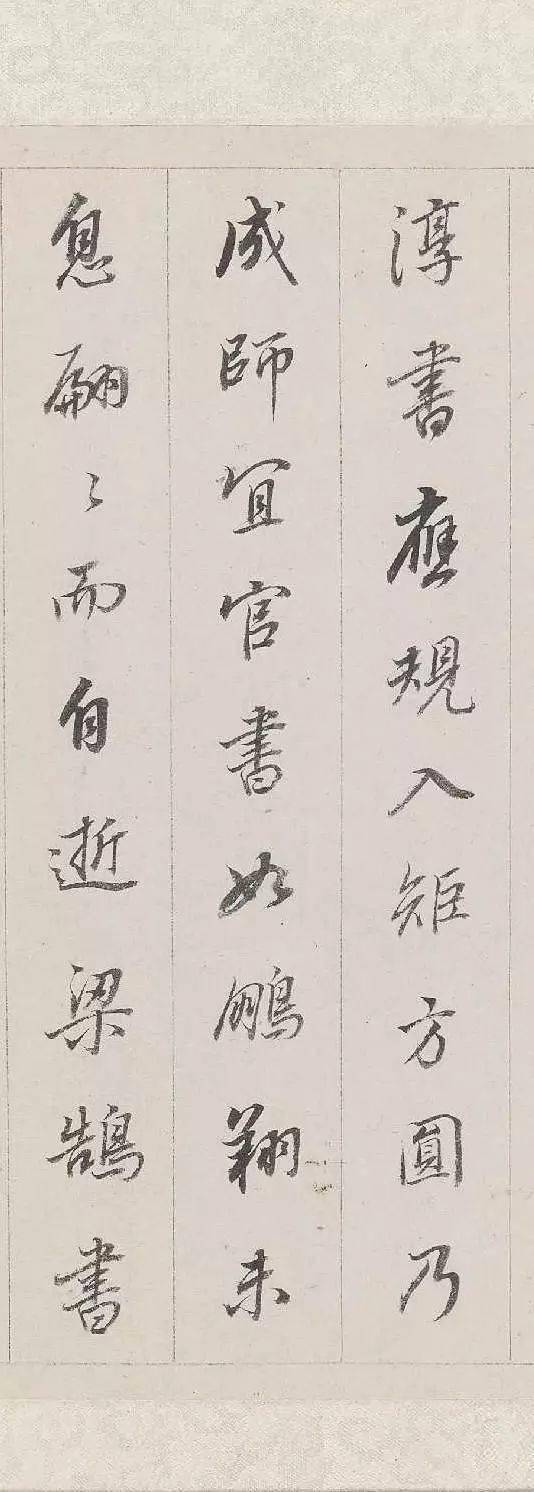 淳書應規入矩方圓乃
成師宜官書如鵬翔未
息翩〻而自逝梁鵠書